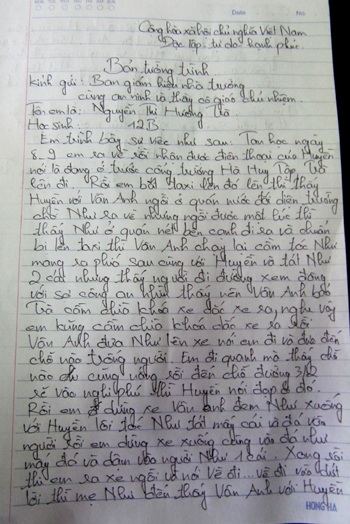 Date No.
Cộng hòa xã hội chủ nghĩa Việt Nam
Độc lập tự do hạnh phúc
Bản tường trình
Kính gửi: Ban giám hiệu nhà trường
cùng an ninh và thầy cô giáo chủ nhiệm.
Tên em là: Nguyễn Thị Hương Trà
Học sinh: 12B.
Em trình bày sự việc như sau: Tan học ngày
8-9 em ra về rồi nhận được điện thoại của Huyền
nói là đang ở trước cổng trường Hà Huy Tập Trà
lên đi. Rồi em bắt taxi lên đó lên thì thấy
Huyền với Vân Anh ngồi ở quán nước đối diện trường
chờ Như ra về nhưng ngồi được một lúc thì
thấy Như ở quán nét bên cạnh đi ra và chuẩn
bị lên taxi thì Vân Anh chạy lại cầm tóc Như
mang ra phố sau cùng với Huyền và tát Như
2 cái nhưng thấy người đi đường xem đông
với sợ công an nhìn thấy nên Vân Anh bảo
Trà cầm chìa khóa xe dắc xe ra, nghe vậy
em cũng cầm chìa khóa dắc xe ra rồi
Vân Anh đưa Như lên xe nói em đi và đưa đến
chỗ nào trống người. Em đi quanh mà thấy chỗ
nào cũng đông rồi đến chỗ đường 3/2
rẽ vào nghi phú thì Huyền nói dọp ở đó.
Rồi em dừng xe Vân Anh đem Như xuống
với Huyền lôi tóc Như tát mấy cái và đá vào
người rồi em dừng xe xuống cũng vào đá như
mấy đá và dẫm vào người Như 1 cái. Xong rồi
thì em ra xe ngồi và nó về đi... về đi vào
lối thì mẹ Như đến thấy Vân Anh với Huyền
HONG HA